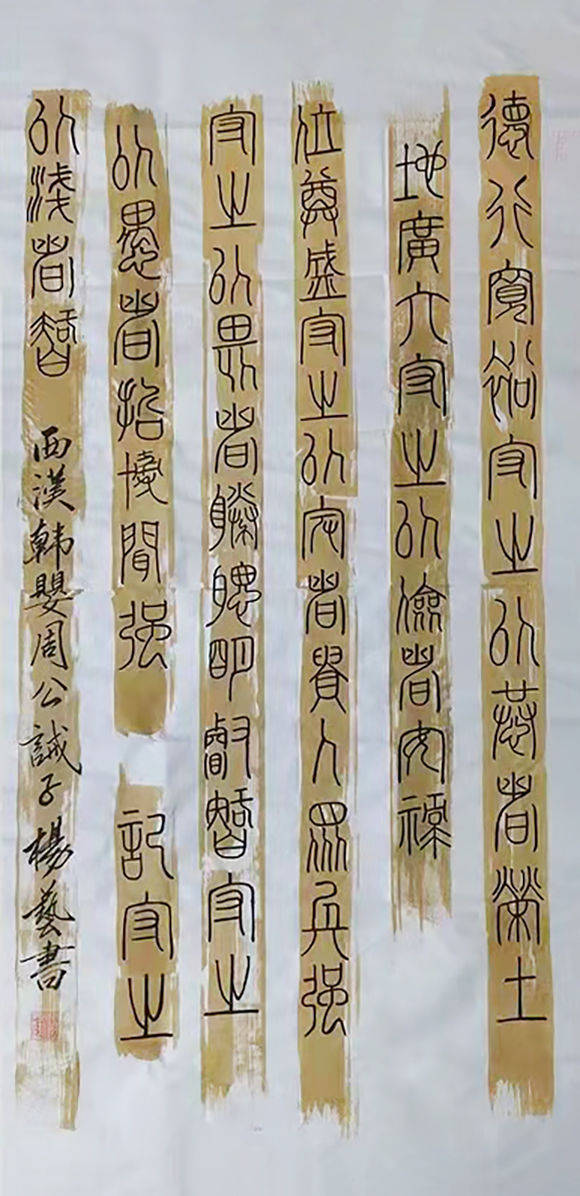 德行寬裕守之以恭者榮土
地廣大守之以儉者安祿
位尊盛守之以卑者貴人眾兵强
守之以畏者勝聰明睿智守之
以愚者哲博聞强記守之
以淺者智 西漢韓嬰周公誡子楊藝書